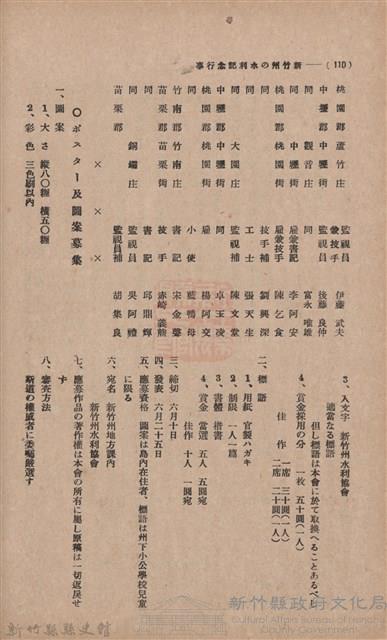 (110) ── 新竹州の水利記念行事
桃園郡 蘆竹庄 監視員兼技手 伊藤武夫
中壢郡 中壢街 監視員 後藤良仲
同 觀音庄 同 富永唯雄
同 中壢街 雇兼書記 李阿安
桃園郡 桃園街 雇兼技手 陳乞食
同 同 技手補 劉興深
同 同 工士 張天生
同 大園庄 監視補 陳文堂
中壢郡 中壢街 同 卓玉凌
桃園郡 桃園街 雇 楊阿交
同 同 小使 藍鴨母
竹南郡 竹南庄 書記 宋金聲
苗栗郡 苗栗街 技手 赤崎義熊
同 同 書記 邱鼎輝
同 銅鑼庄 監視員 吳阿禮
苗栗郡 監視員補 胡集良
× × ×
○ポスター及圖案募集
一、圖案
1、大さ 縱八〇糎 橫五〇糎
2、彩色 三色刷以內
3、入文字 新竹州水利協會
適當なる標語
但し標語は本會に於て取換へることあるべし
4、賞金採用の分 一枚 五十圓(一人)
佳作 一席 三十圓(一人)
二席 二十圓(一人)
二、標語
1、用紙 官製ハガキ
2、制限 一人一篇
3、書體 楷書
4、賞金 當選 五人 五圓宛
佳作 十人 一圓宛
三、締切 六月十日
四、發表 六月二十五日
五、應募資格 圖案は島內在住者、標語は州下小公學校兒童
に限る
六、宛名 新竹州地方課內
新竹州水利協會
七、應募作品の著作權は本會の所有に屬し原稿は一切返戾せ
ず
八、審查方法
斯道の權威者に委囑嚴選す
新竹縣縣史館
新竹縣政府文化局
Cultural Affairs Bureau of Hsinchu County Government